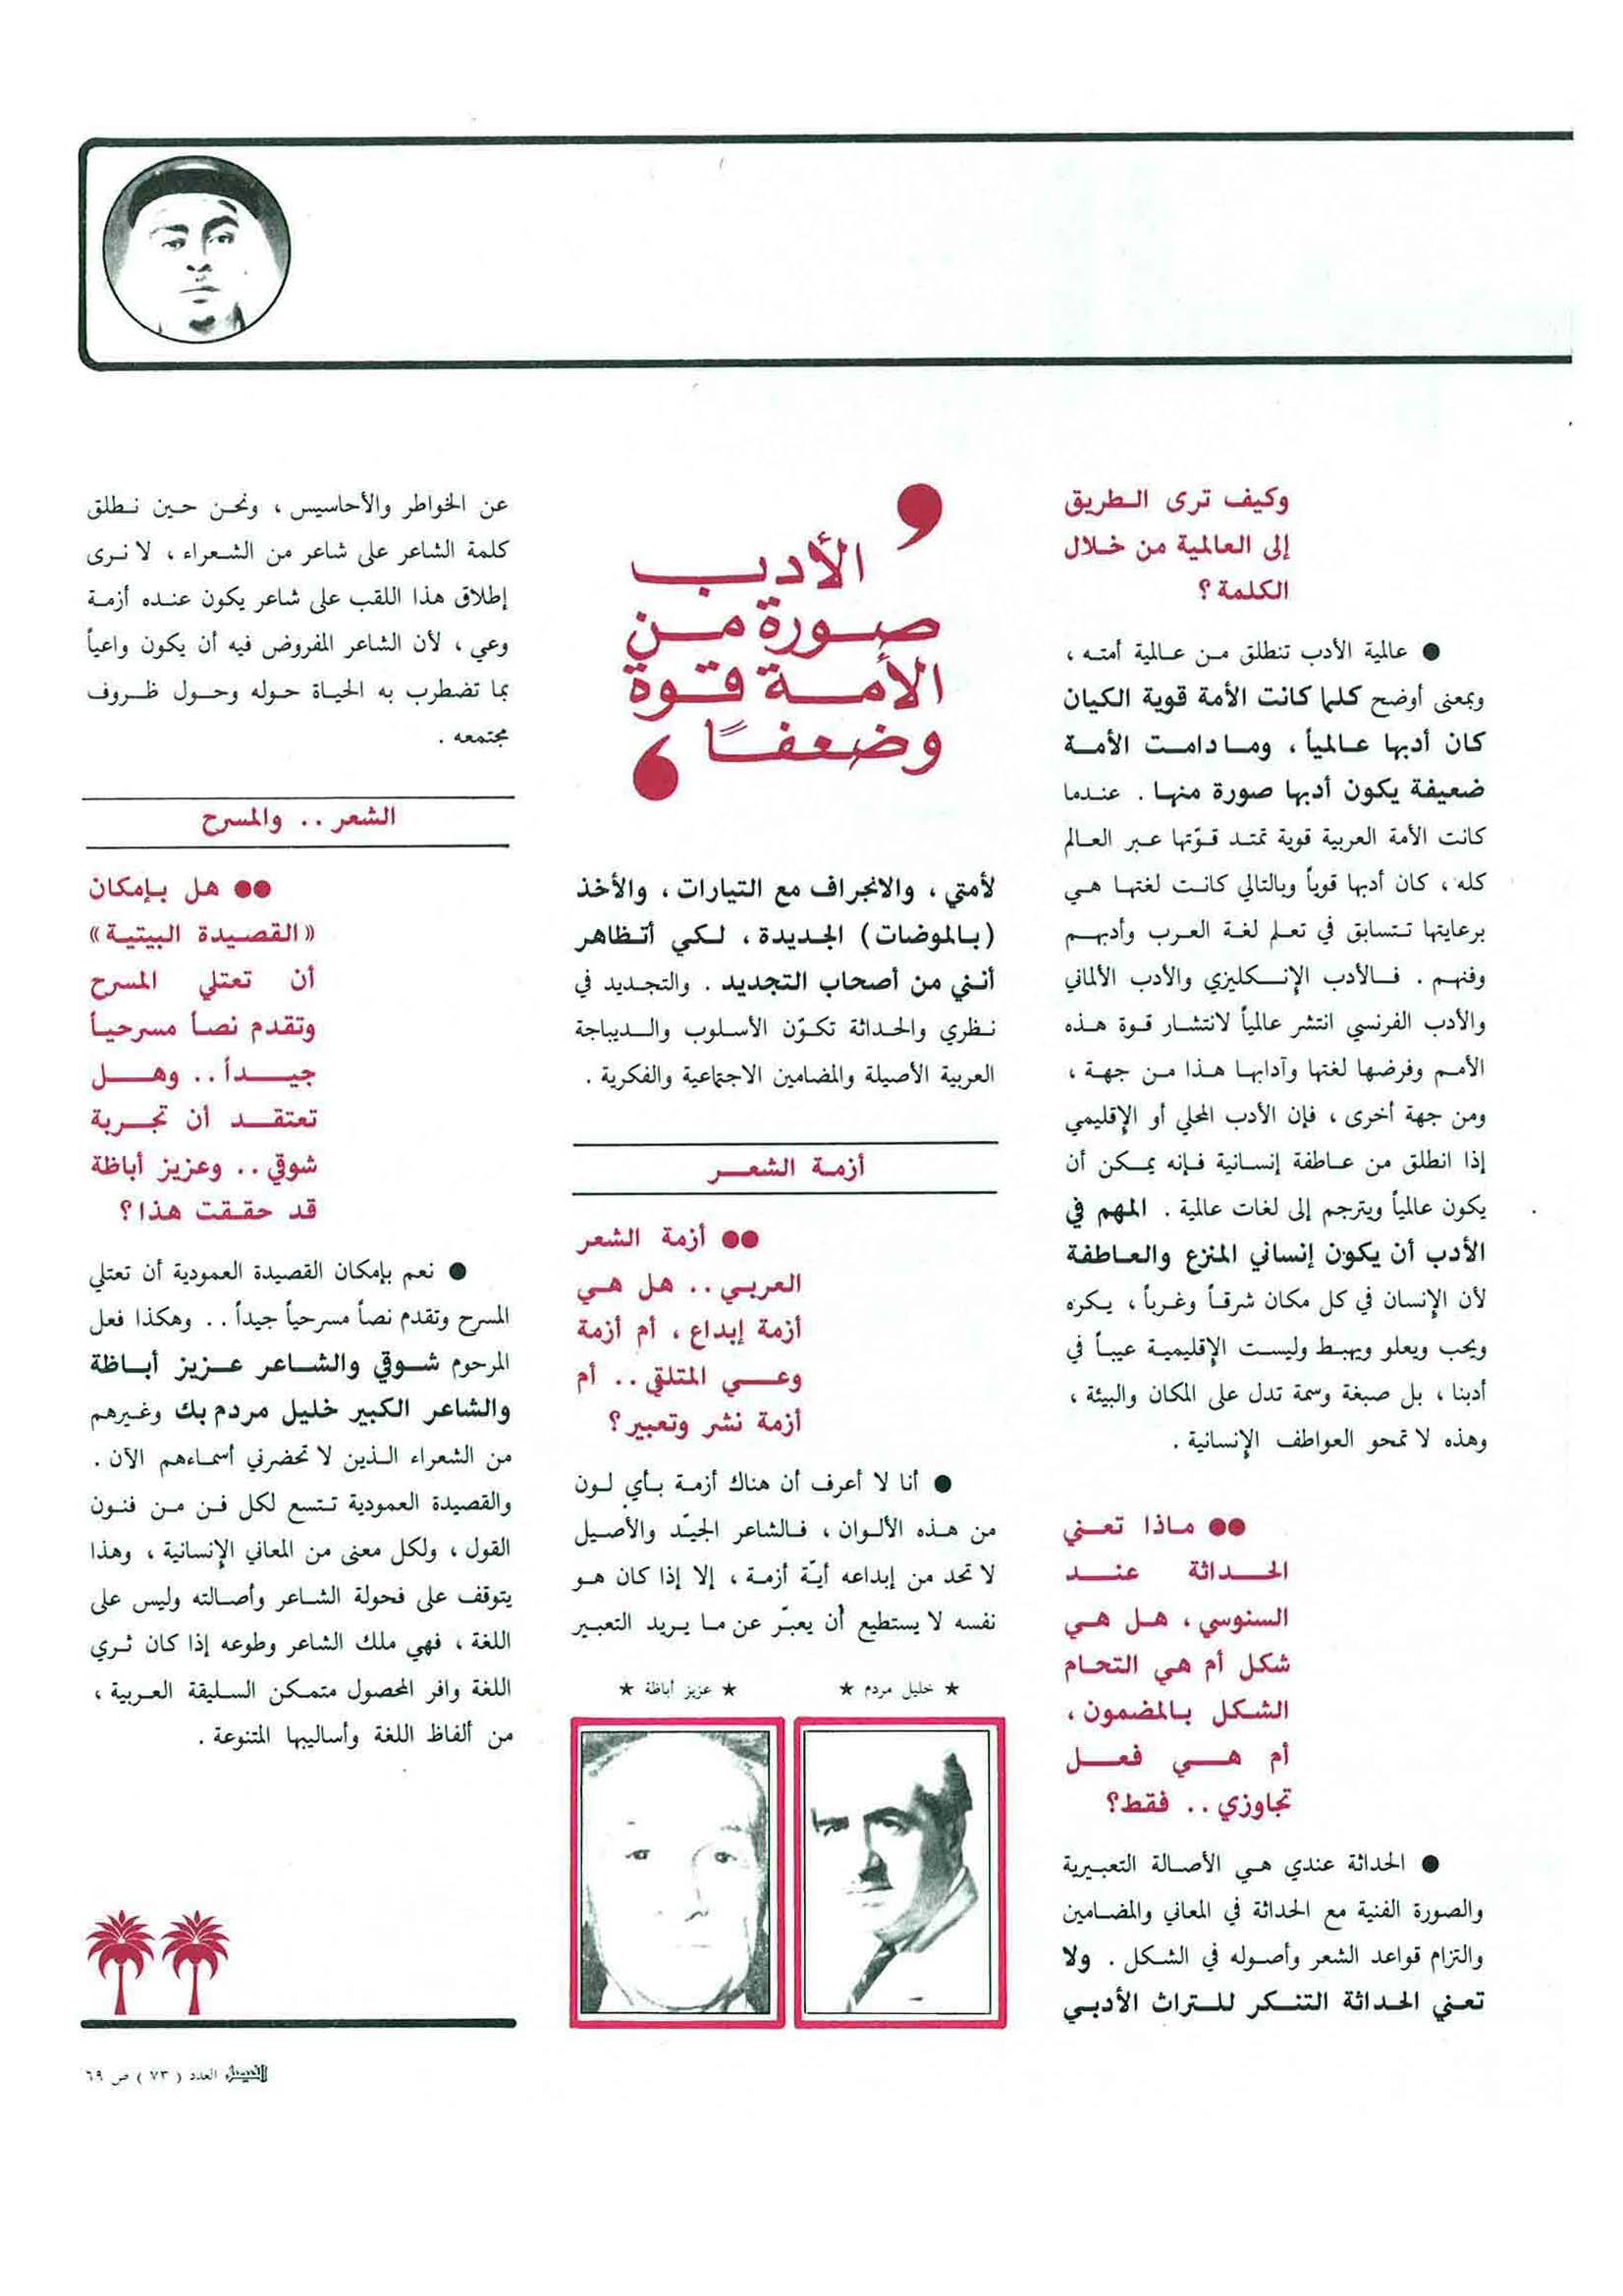 وكيف ترى الطريق
إلى العالمية من خلال
الكلمة ؟
● عالمية الأدب تنطلق من عالمية أمته ،
وبمعنى أوضح كلما كانت الأمة قوية الكيان
كان أدبها عالمياً ، وما دامت الأمة
ضعيفة يكون أدبها صورة منها . عندما
كانت الأمة العربية قوية تمتد قوّتها عبر العالم
كله ، كان أدبها قوياً وبالتالي كانت لغتها هي
برعايتها تتسابق في تعلم لغة العرب وأدبهم
وفنهم . فالأدب الإنكليزي والأدب الألماني
والأدب الفرنسي انتشر عالمياً لانتشار قوة هذه
الأمم وفرضها لغتها وآدابها هذا من جهة ،
ومن جهة أخرى ، فإن الأدب المحلي أو الإقليمي
إذا انطلق من عاطفة إنسانية فإنه يمكن أن
يكون عالمياً ويترجم إلى لغات عالمية . المهم في
الأدب أن يكون إنساني المنزع والعاطفة
لأن الإنسان في كل مكان شرقاً وغرباً ، يكره
ويحب ويعلو ويهبط وليست الإقليمية عيباً في
أدبنا ، بل صبغة وسمة تدل على المكان والبيئة ،
وهذه لا تمحو العواطف الإنسانية .
●● ماذا تعني
الحداثة عند
السنوسي ، هل هي
شكل أم هي التحام
الشكل بالمضمون ،
أم هي فعل
تجاوزي .. فقط؟
● الحداثة عندي هي الأصالة التعبيرية
والصورة الفنية مع الحداثة في المعاني والمضامين
والتزام قواعد الشعر وأصوله في الشكل . ولا
تعني الحداثة التنكر للتراث الأدبي
❜ الأدب
صورة من
الأمة قوة
وضعفاً ❛
لأمتي ، والانجراف مع التيارات ، والأخذ
(بالموضات) الجديدة ، لكي أتظاهر
أنني من أصحاب التجديد . والتجديد في
نظري والحداثة تكوّن الأسلوب والديباجة
العربية الأصيلة والمضامين الاجتماعية والفكرية .
أزمة الشعر
●● أزمة الشعر
العربي .. هل هي
أزمة إبداع ، أم أزمة
وعي المتلقي .. أم
أزمة نشر وتعبير؟
● أنا لا أعرف أن هناك أزمة بأي لون
من هذه الألوان ، فالشاعر الجيّد والأصيل
لا تحد من إبداعه أيّة أزمة ، إلا إذا كان هو
نفسه لا يستطيع أن يعبّر عن ما يريد التعبير
★ خليل مردم ★
★ عزيز أباظة ★
عن الخواطر والأحاسيس ، ونحن حين نطلق
كلمة الشاعر على شاعر من الشعراء ، لا نرى
إطلاق هذا اللقب على شاعر يكون عنده أزمة
وعي ، لأن الشاعر المفروض فيه أن يكون واعياً
بما تضطرب به الحياة حوله وحول ظروف
مجتمعه .
الشعر .. والمسرح
●● هل بإمكان
«القصيدة البيتية»
أن تعتلي المسرح
وتقدم نصاً مسرحياً
جيداً .. وهل
تعتقد أن تجربة
شوقي .. وعزيز أباظة
قد حققت هذا؟
● نعم بإمكان القصيدة العمودية أن تعتلي
المسرح وتقدم نصاً مسرحياً جيداً .. وهكذا فعل
المرحوم شوقي والشاعر عزيز أباظة
والشاعر الكبير خليل مردم بك وغيرهم
من الشعراء الذين لا تحضرني أسماءهم الآن .
والقصيدة العمودية تتسع لكل فن من فنون
القول ، ولكل معنى من المعاني الإنسانية ، وهذا
يتوقف على فحولة الشاعر وأصالته وليس على
اللغة ، فهي ملك الشاعر وطوعه إذا كان ثري
اللغة وافر المحصول متمكن السليقة العربية ،
من ألفاظ اللغة وأساليبها المتنوعة .
الفيصل العدد (٧٣) ص ٦٩